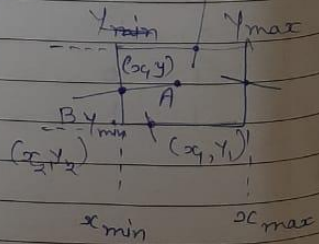 Ymin Ymax
(x, y)
A
B Ymin
(x2, y2) (x1, y1)
xmin xmax